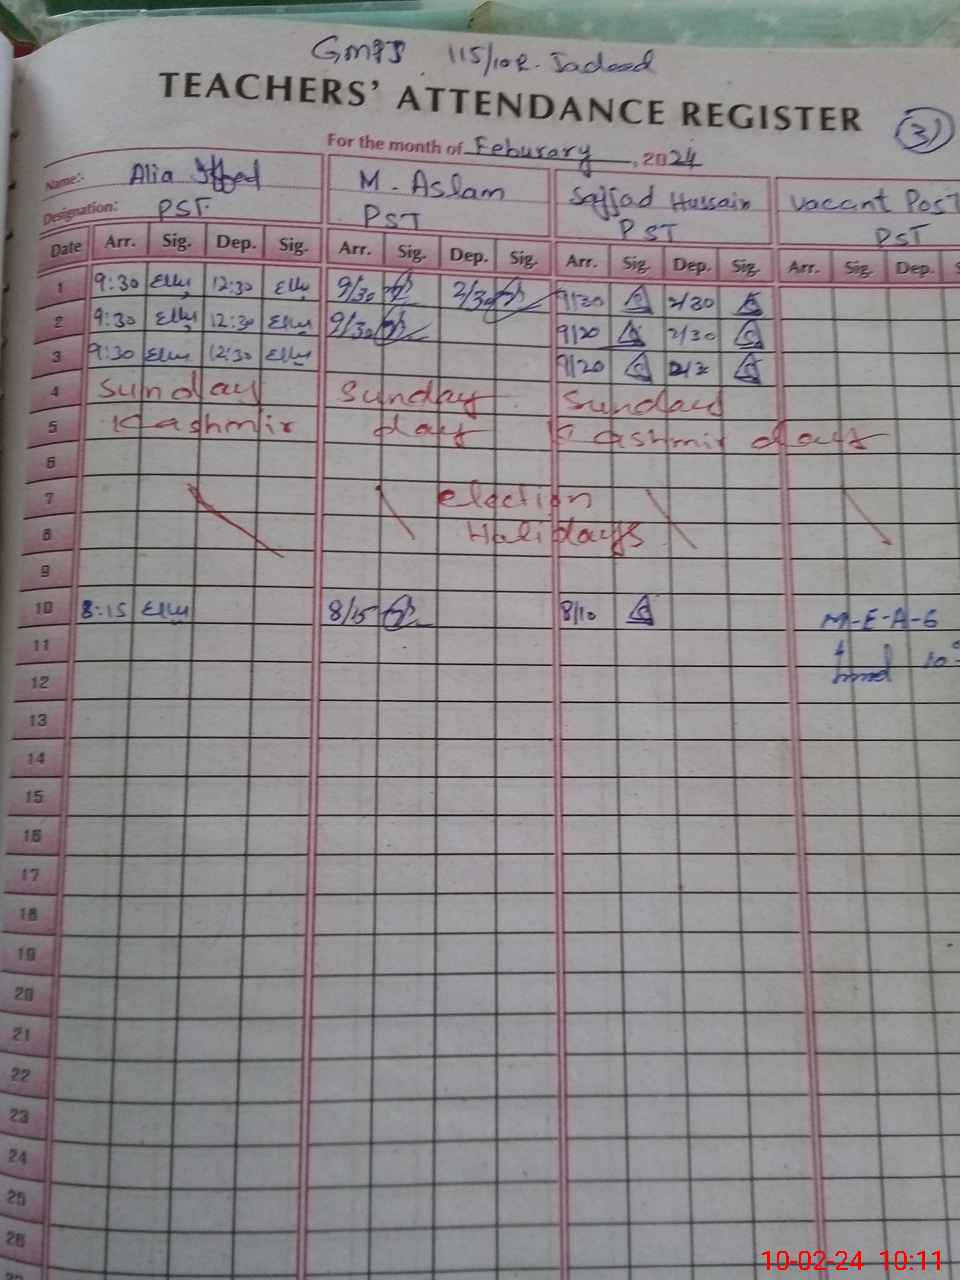 115/10R. Jadeed
TEACHERS' ATTENDANCE REGISTER
3
For the month of Feburary, 2024
Name:- Alia M. Aslam Sajjad Hussain Vacant Post
Designation: PST PST PST PST
Date Arr. Sig. Dep. Sig. Arr. Sig. Dep. Sig. Arr. Sig. Dep. Sig. Arr. Sig. Dep. S
1 9:30 12:30 9/30 2/30 9/30 2/30
2 9:30 12:30 9/30 9/20 2/30
3 9:30 12:30 9/20
4 Sunday Sunday Sunday
5 Kashmir day Kashmir days
6
7 election
8 Halidays
9
10 8:15 8/15 8/10 M-E-A-6
11
12
13
14
15
16
17
18
19
20
21
22
23
24
25
26
10-02-24 10:11